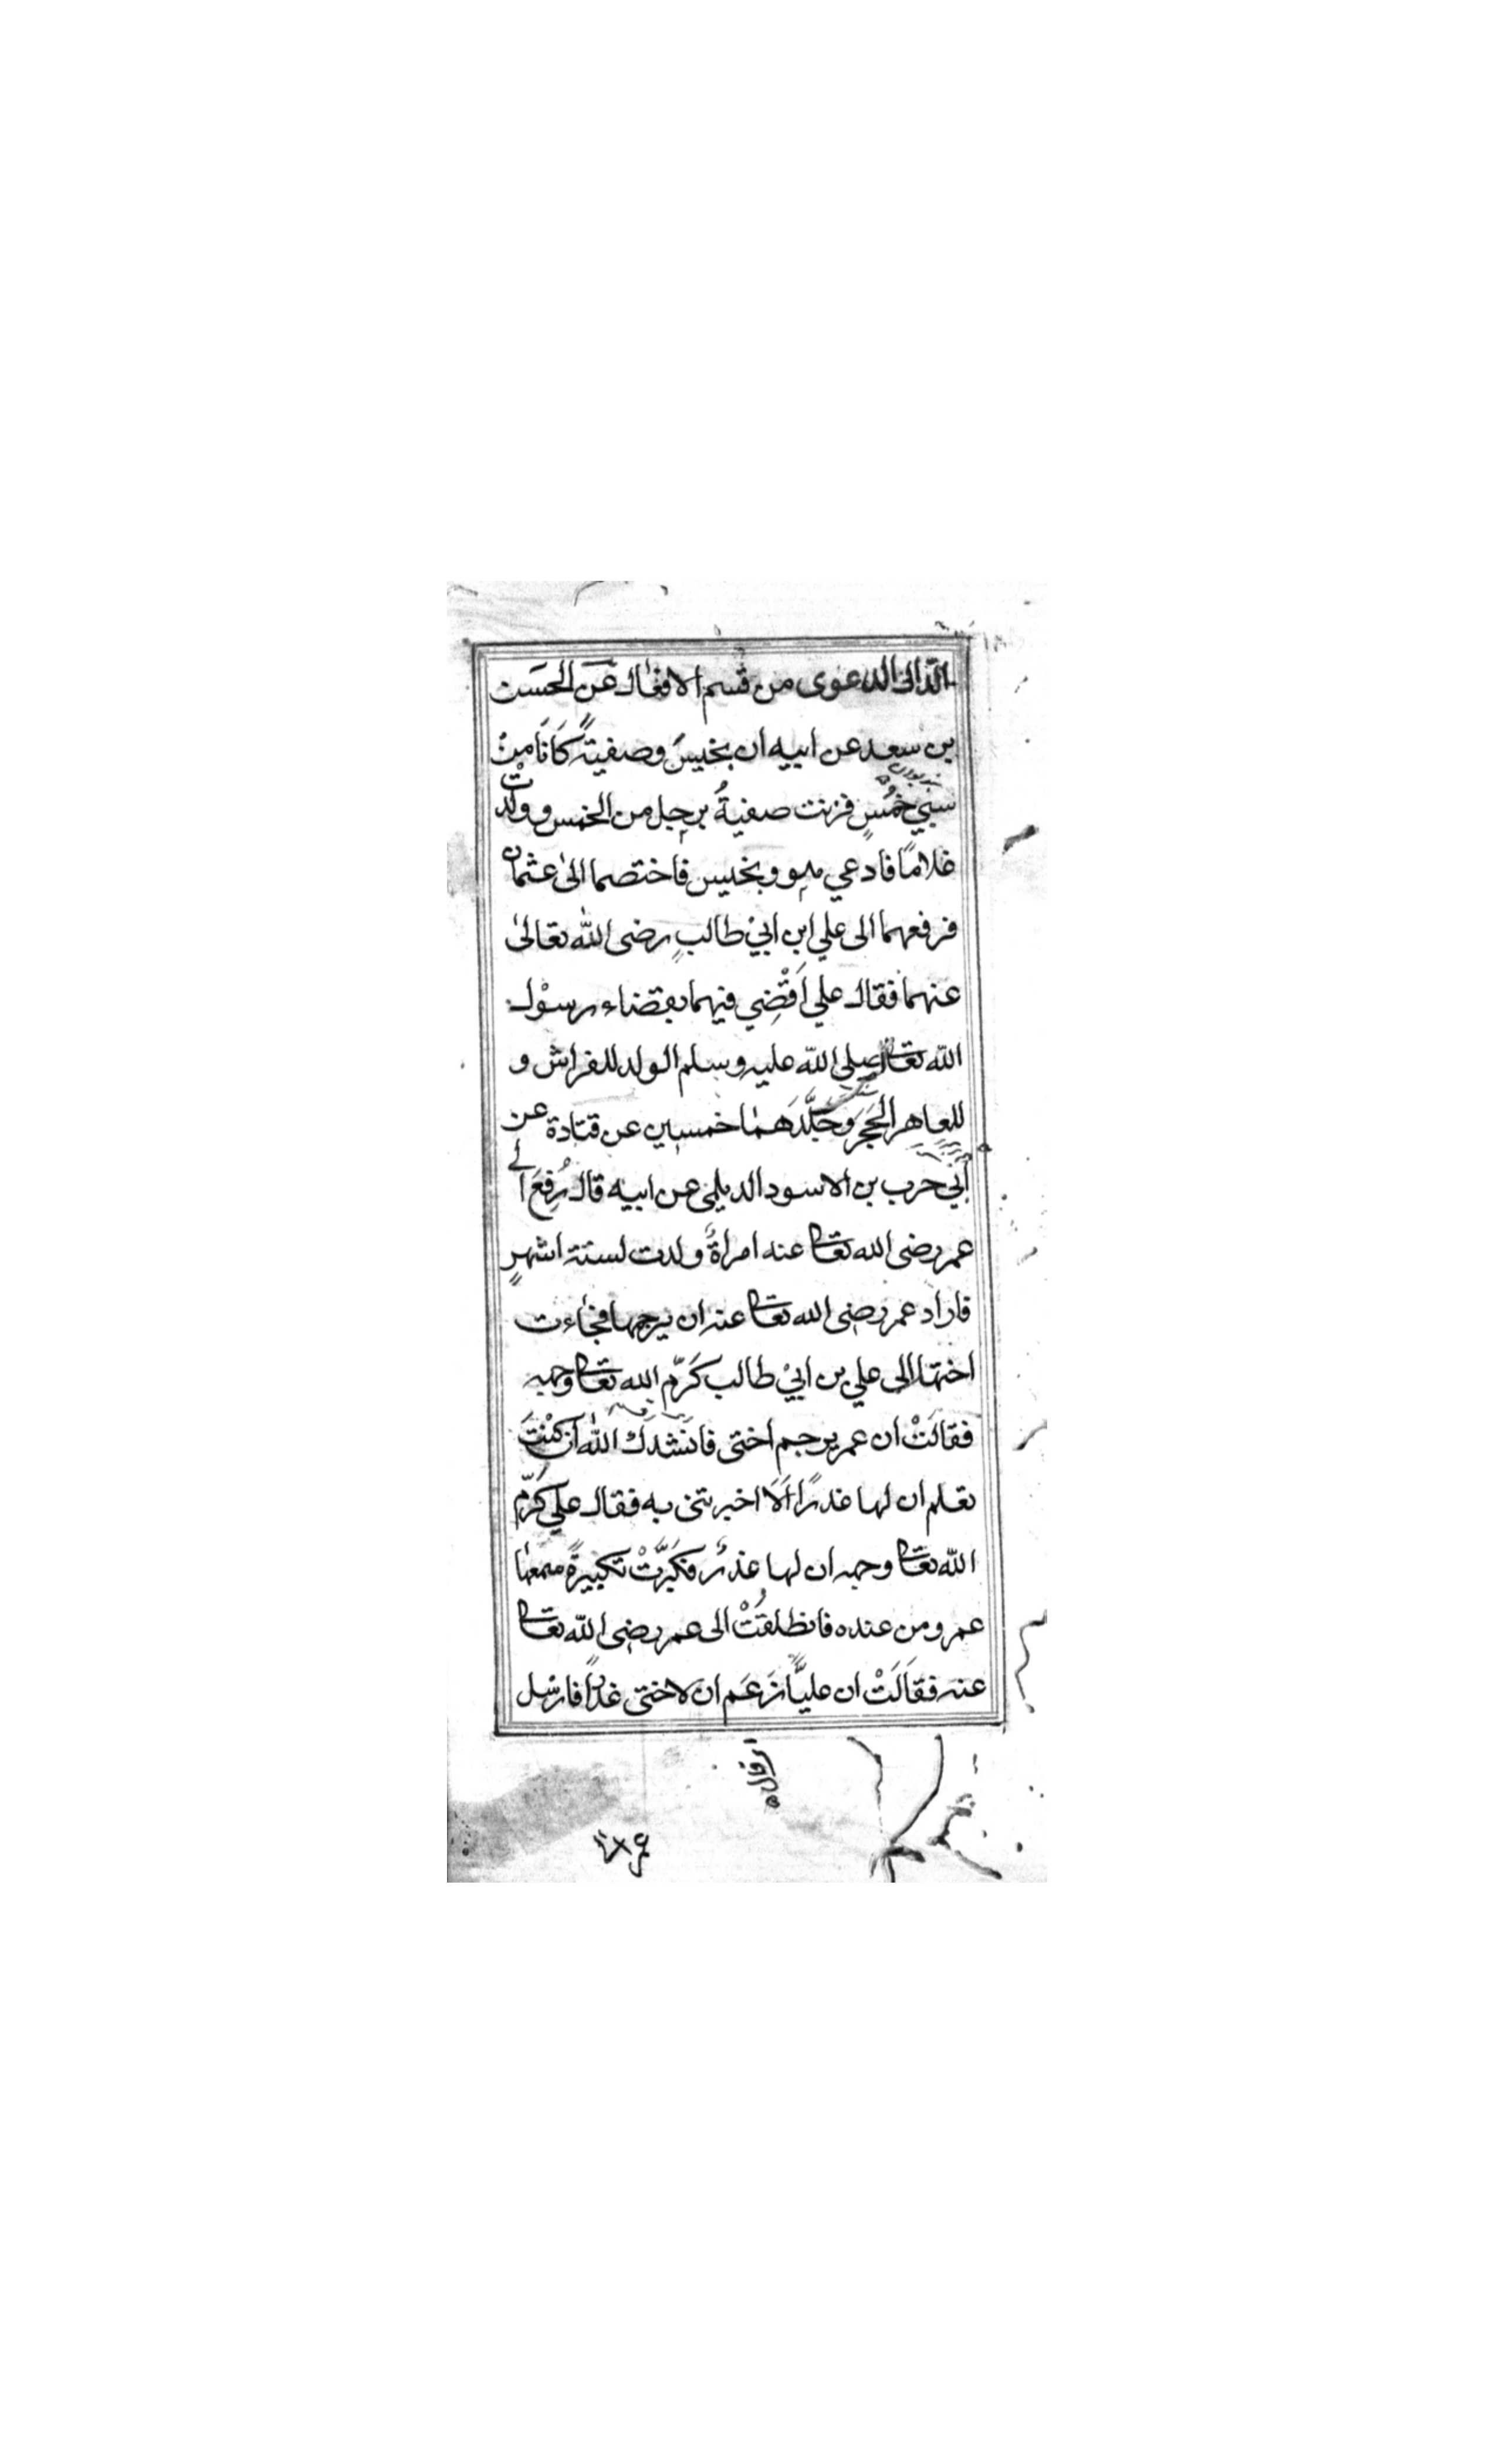 الدال الدعوى من قسم الافعال عَن الحَسَن
بن سعد عن ابيه ان بخيسَ وصفيَةً كَانَا مِنْ
سَبْيِ خمُسٍ فزنت صفيةُ برجل من الخمس وولَدتْ
غلامًا فادعي هو وبخيس فاختصما الىٰ عثمان
فرفعهما الى علي ابن ابيْ طالبٍ رضى اللّٰه تعالىٰ
عنهما فقال علي اَقْضِي فيهما بقضاء رسوْل
اللّه تعالى صلى اللّه عليه وسلم الولد للفراش و
للعاهر الحَجَرَ وَجَلَّدَهَمٰا خمسين عن قتادة عن
اَبي حرب بن الاسود الديلمى عن ابيه قال رُفِعَ الى
عمر رضى الله تعالى عنه امراةُ ولدت لستة اشهرٍ
فاراد عمر رضى الله تعالى عنه ان يرجمها فجٰاءت
اختها الى علي بن ابيْ طالب كَرّم الله تعالى وجهه
فقالَتْ ان عمر يرجم اختى فانَشدَك اللّٰه اَن كنْتَ
تعلم ان لها عذرًا اَلَا اخبرتنى به فقال على كَرّم
اللّه تعالى وجهه ان لها عذرُ فكَبَّرَتْ تكبيرةً سمعها
عمر ومن عنده فانطلقَتْ الى عمر رضى اللّه تعالى
عنه فقَالَتْ ان عليًّا زَعَم ان لاختى عذرًا فارسَل